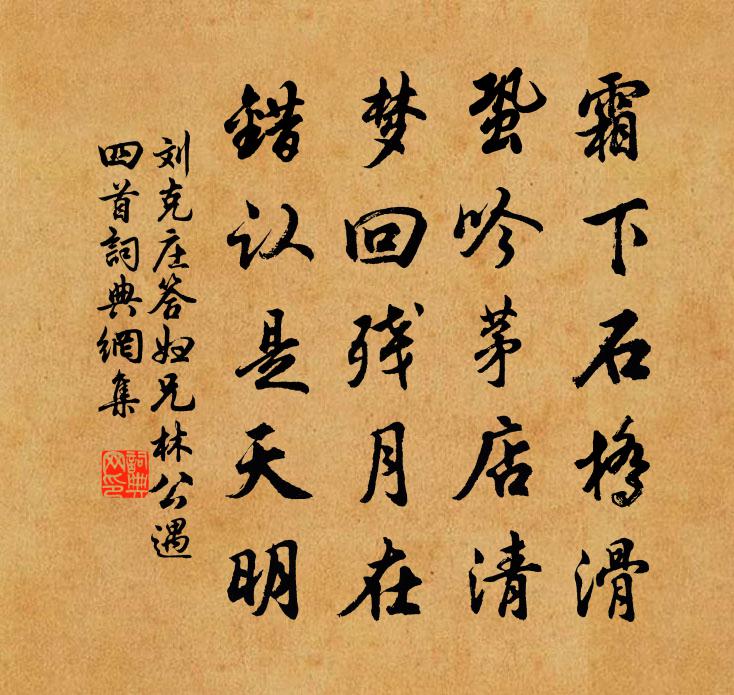 霜下石橋滑
蛩吟茅店清
梦回残月在
錯认是天明
刘克庄答妇兄林公遇
四首詞典網集
詞典
网印